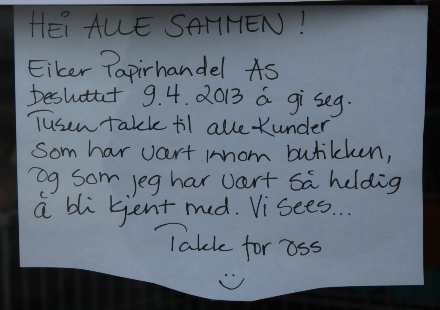 HEI ALLE SAMMEN !
Eiker Papirhandel AS
besluttet 9.4. 2013 å gi seg.
Tusen takk til alle kunder
som har vært innom butikken,
og som jeg har vært så heldig
å bli kjent med. Vi sees...
Takk for oss